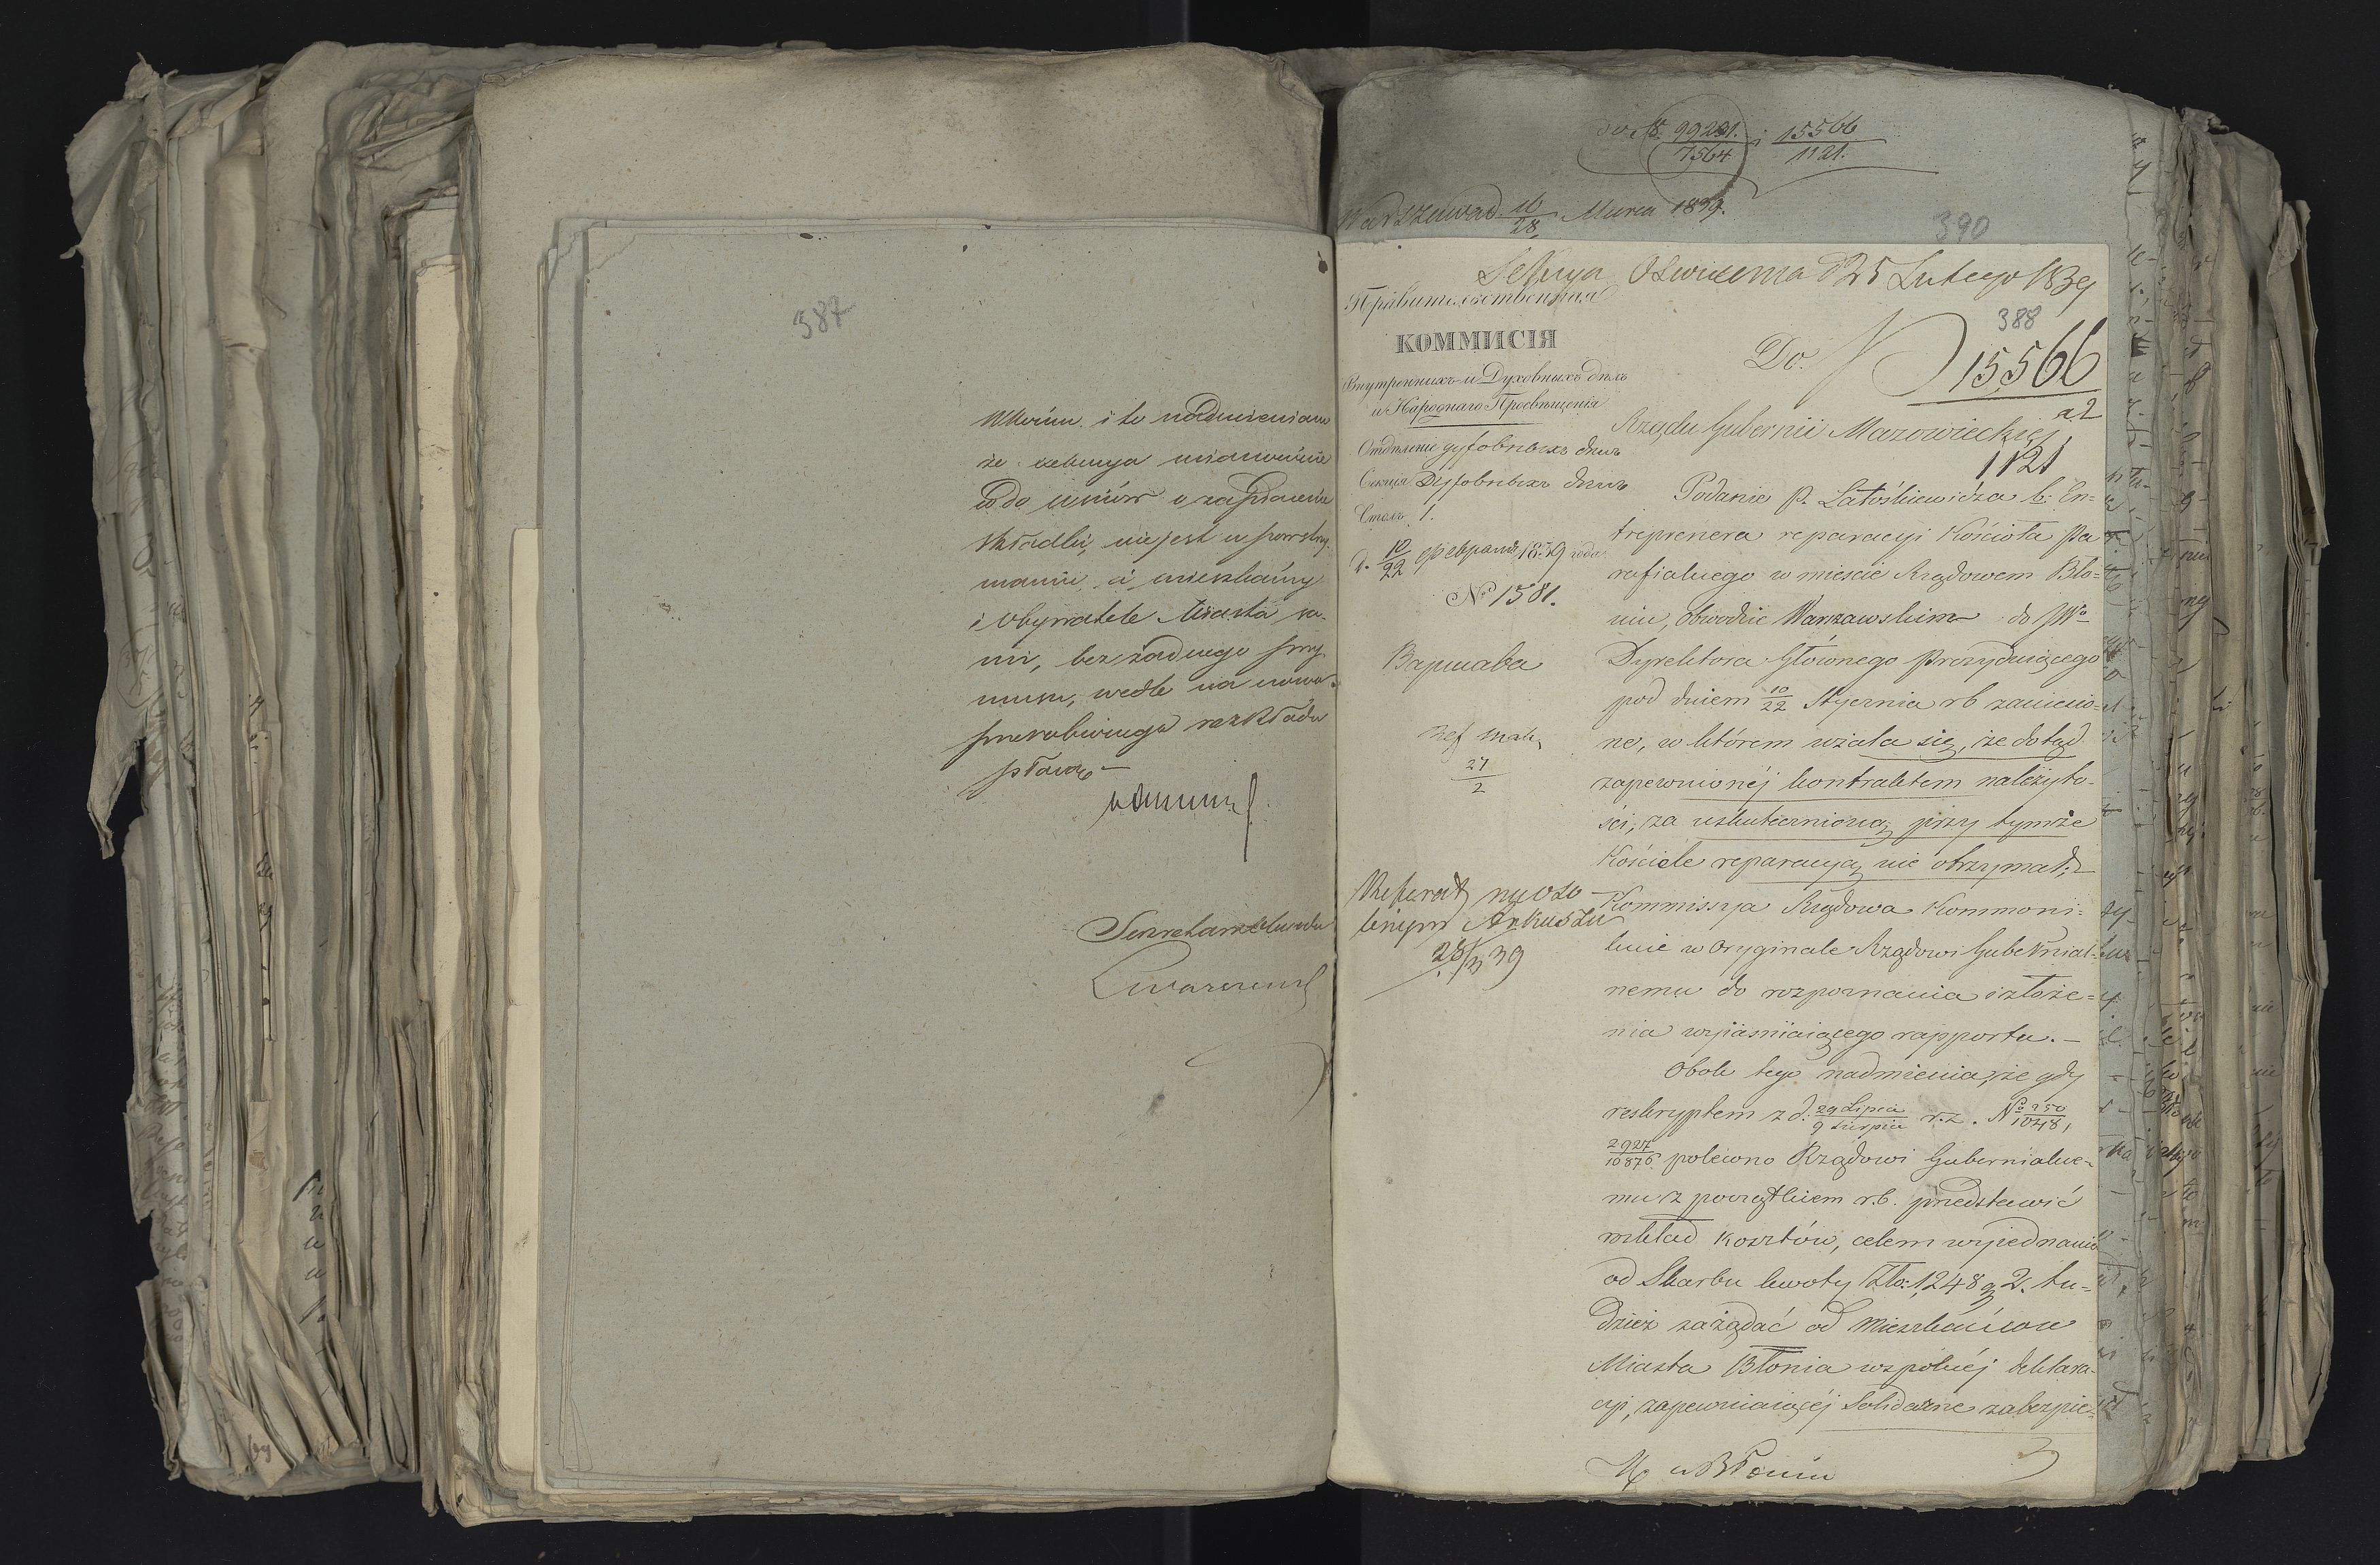 387
i to nadmieniam
że
co do
składki, nie jest w powstrzy-
maniu, a mieszkańcy
i Obywatele Miasta sa-
mi, bez żadnego przy-
musu, wedle na nowo
przerobionego rozkładu
płacą
do N. 99231/7564 i 15566/1121.
Warszawa d. 16/28 Marca 1839.
390
Sekcya Oświecenia d 25 Lutego 1839
Правительственная
КОММИСІЯ
Внутреннихъ и Духовныхъ дѣлъ
и Народнаго Просвѣщенія
Отдѣленіе духовныхъ дѣлъ
Секція Духовныхъ дѣлъ
Столъ 1.
д. 10/22 февраля 1839 года
№ 1581.
Варшава
27/2
Referat na oso-
bnym Arkuszu
28/3 39
388
Do
15566
a 2
Rządu Gubernii Mazowieckiéj
1121
Podanie P. Latośkiewicza b: En-
treprenera reparacyi Kościoła Pa
rafialnego w mieście Rządowem Bło=
niu, Obwodzie Warszawskim do JWo
Dyrektora Głównego Prezyduiącego
pod dniem 10/22 Stycznia rb zaniesio=
ne, w którem użala się, że dotąd
zapewnionéj kontraktem należyto-
ści, za uskutecznioną przy tymże
Kościele reparacyą nie otrzymał;
Kommissya Rządowa Kommuni=
kuie w Oryginale Rządowi Gubernial=
nemu do rozpoznania i złoże=
nia wyiaśniaiącego rapportu. –
Obok tego nadmienia, że gdy
reskryptem z d. 29 Lipca/9 Sierpnia r.z. No 250/1048,
2927/10876 polecono Rządowi Gubernialne-
mu z początkiem r.b. przedstawić
rozkład kosztów, celem wyjednania
od Skarbu kwoty Złp: 1,248 g 2. tu=
dzież zażądać od Mieszkańców
Miasta Błonia wspólnéj deklara-
cyi, zapewniaiącéj Solidarne zabezpie=
w Błoniu